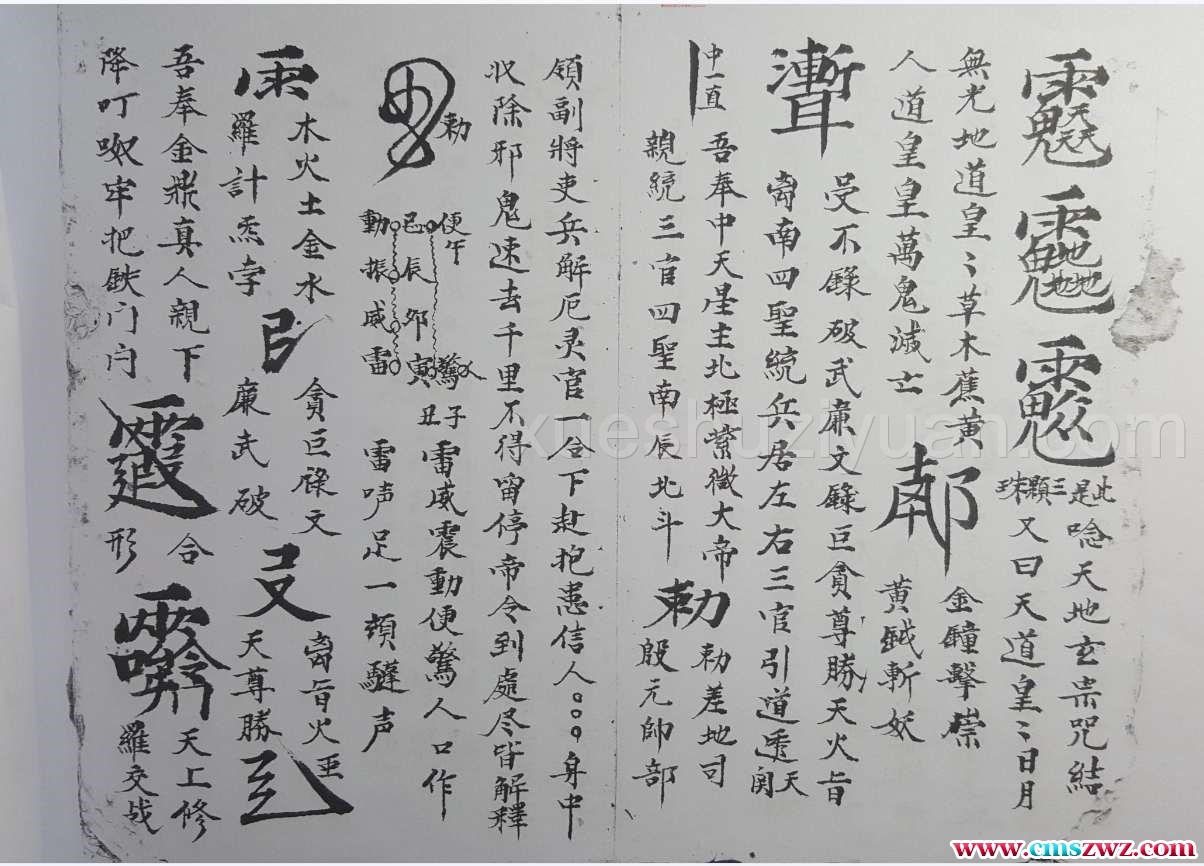 此是三顆珠 唸天地玄宗咒結
又曰天道皇〻日月
無光地道皇〻草木蕉黄 金鐘擊祟
人道皇皇萬鬼滅亡 黄鉞斬妖
受不録破武廉文錄巨貪尊勝天火旨
南四聖統兵居左右三官引道透天関
中一直 吾奉中天星主北極紫微大帝 勅 勅差地司
親統三官四聖南辰北斗 殷元帥部
領副將吏兵解厄灵官一合下赴抱患信人。。。身中
收除邪鬼速去千里不得留停帝令到處尽皆解釋
勅
便午 驚子雷威震動便驚人口作
巳辰卯寅丑
動振威雷 雷声足一頭驢声
雨 木火土金水 貪巨祿文 旨火
羅計炁孛 廉武破 天尊勝
吾奉金鼎真人親下 合 天上修
降叮㕭牢把鉄门闩 形 羅交战
xueshuziyuan.com
www.cmszwz.com